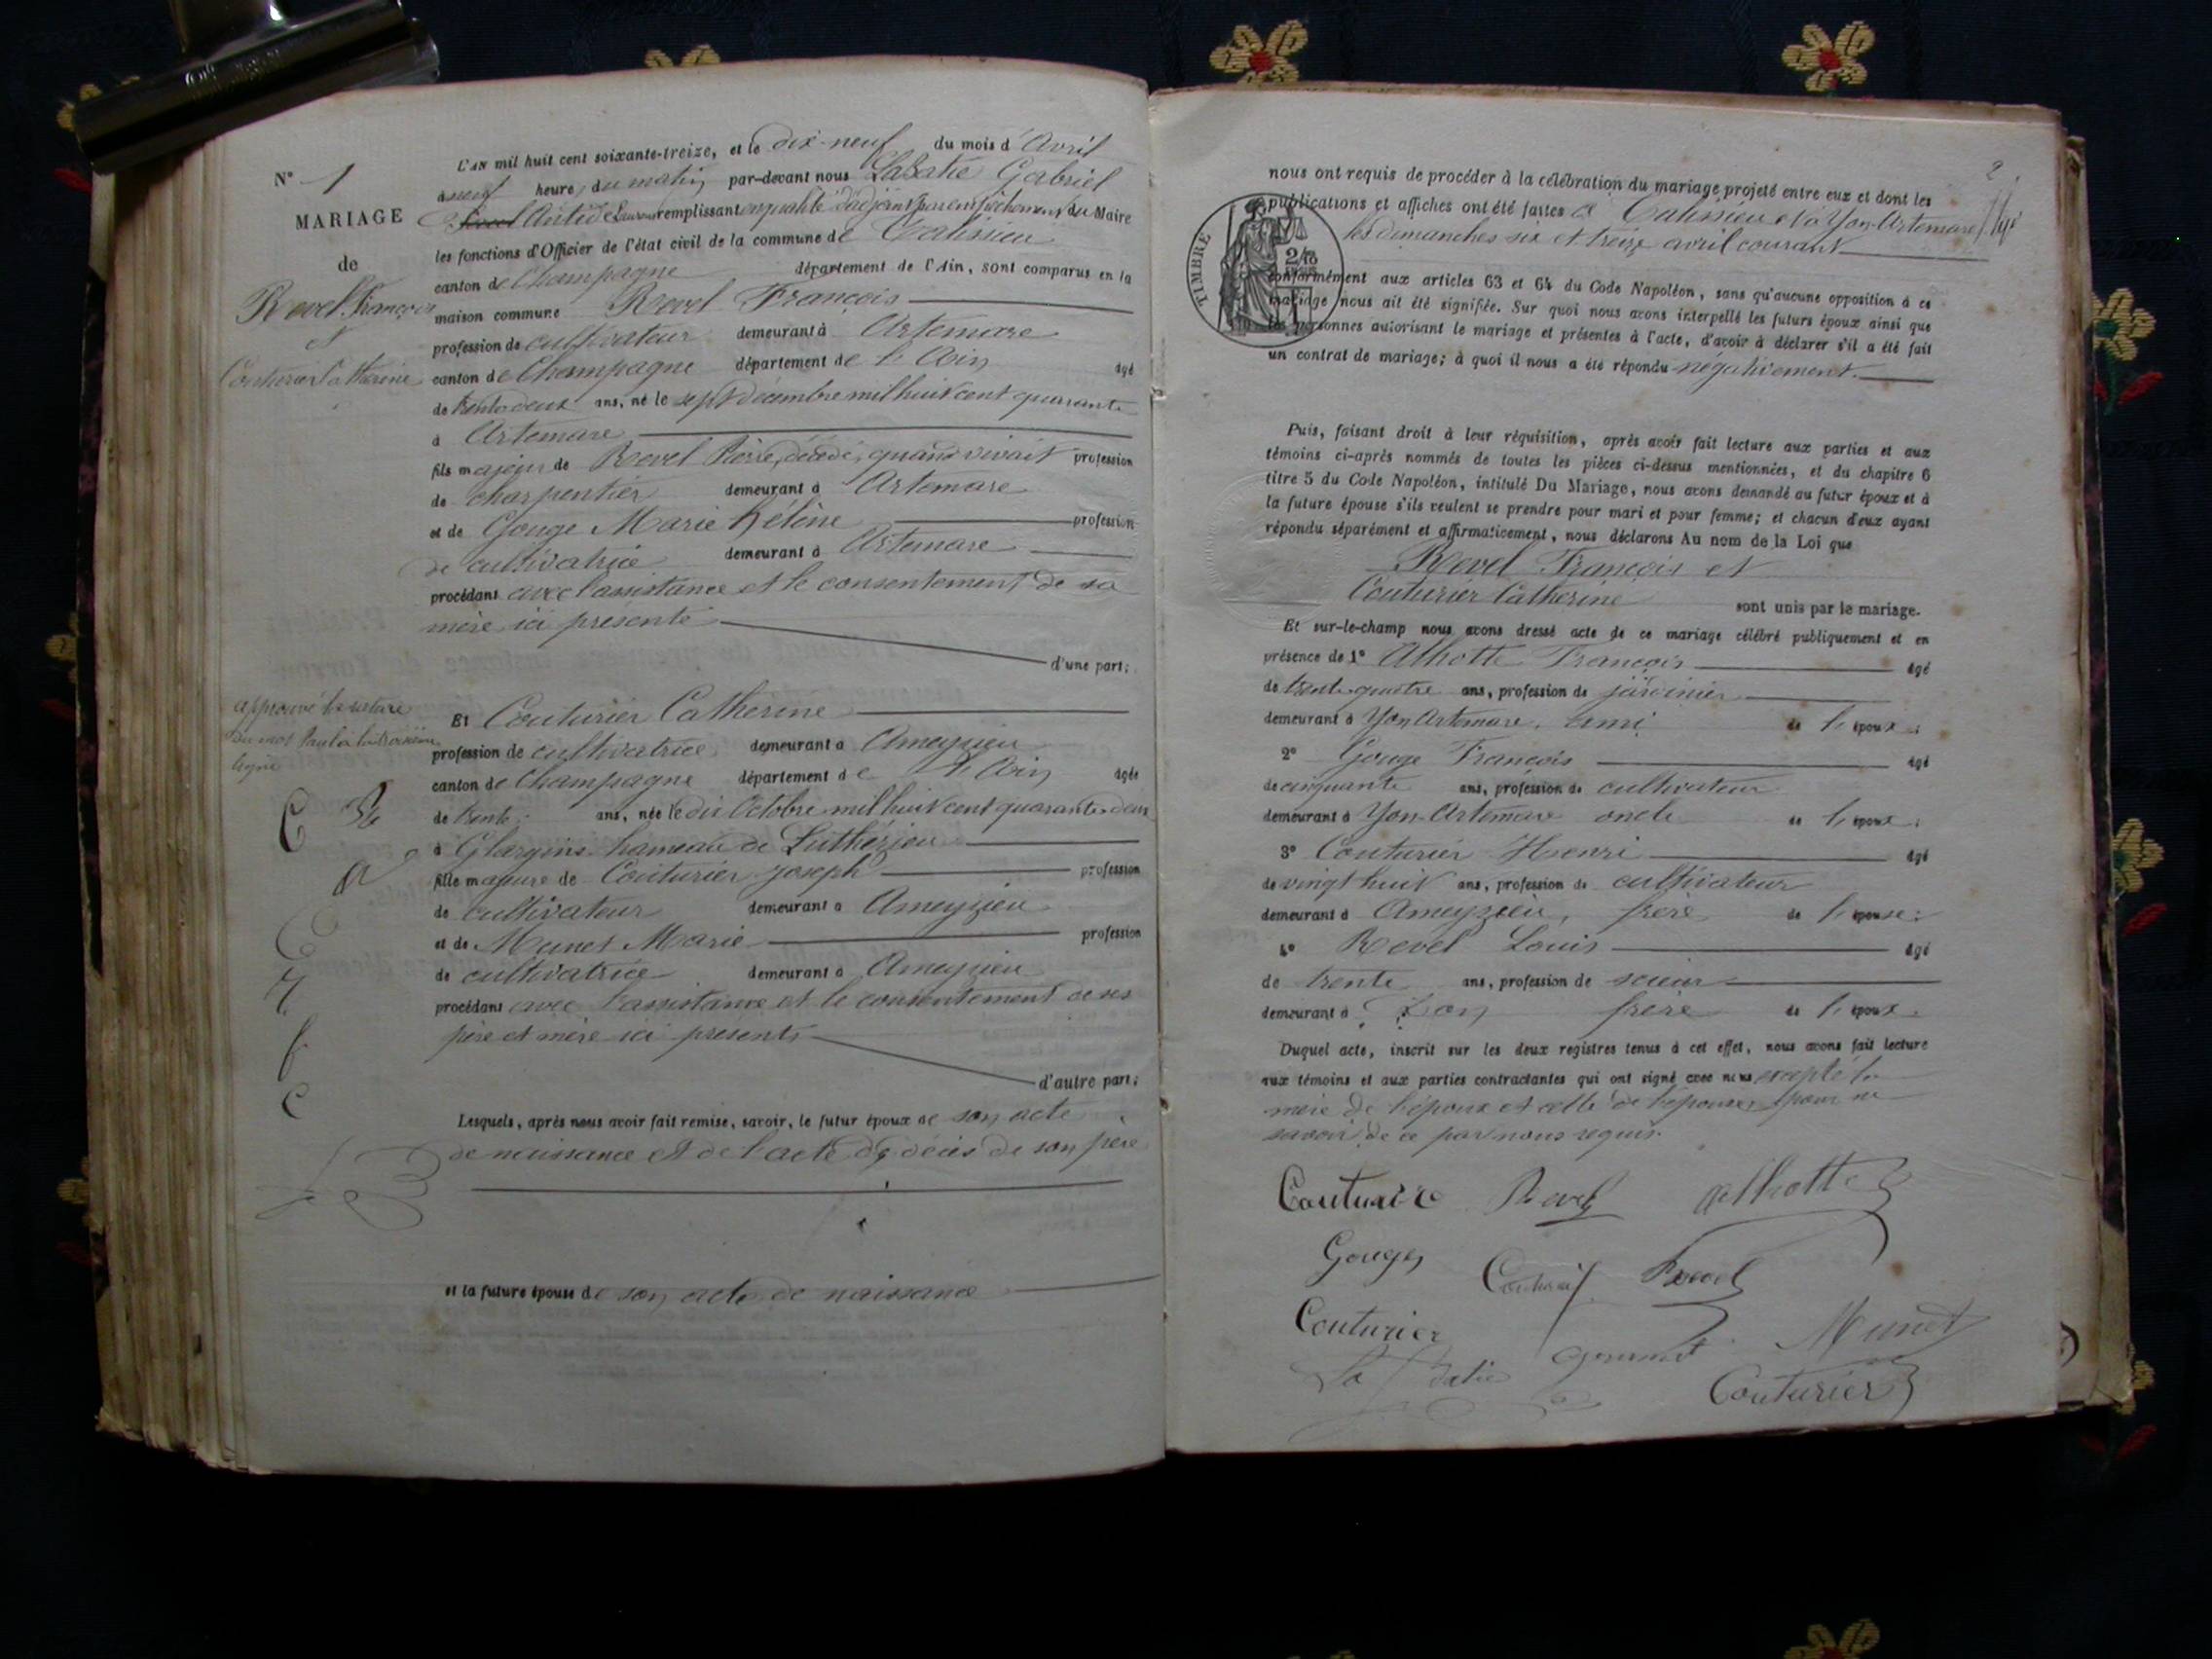 N° 1
MARIAGE
de
Revel François
et
Couturier Catherine
approuvé la rature
du mot Paul à la troisième
ligne
L'AN mil huit cent soixante-treize, et le dix-neuf du mois d'Avril
à neuf heures du matin par-devant nous LaBatie Gabriel
Antide remplissant en qualité d'adjoint par empêchement du Maire
les fonctions d'Officier de l'état civil de la commune de Talissieu
canton de Champagne département de l'Ain, sont comparus en la
maison commune Revel François
profession de cultivateur demeurant à Artemare
canton de Champagne département de l'Ain âgé
de trente deux ans, né le sept décembre mil huit cent quarante
à Artemare
fils majeur de Revel Pierre, décédé, quand vivait profession
de charpentier demeurant à Artemare
et de Gouge Marie hélène profession
de cultivatrice demeurant à Artemare
procédant avec l'assistance et le consentement de sa
mère ici présente
d'une part;
Et Couturier Catherine
profession de cultivatrice demeurant à Ameyzieu
canton de Champagne département de l'Ain âgée
de trente ans, née le dix Octobre mil huit cent quarante-deux
à hameau de Luthézieu
fille majeure de Couturier joseph profession
de cultivateur demeurant à Ameyzieu
et de Munet Marie profession
de cultivatrice demeurant à Ameyzieu
procédant avec l'assistance et le consentement de ses
père et mère ici présents
d'autre part;
Lesquels, après nous avoir fait remise, savoir, le futur époux de son acte
de naissance et de l'acte de décès de son père
et la future épouse de son acte de naissance
2
nous ont requis de procéder à la célébration du mariage projeté entre eux et dont les
publications et affiches ont été faites à Talissieu et à Yon-Artemare
les dimanches six et treize avril courant
TIMBRE
conformément aux articles 63 et 64 du Code Napoléon, sans qu'aucune opposition à ce
mariage nous ait été signifiée. Sur quoi nous avons interpellé les futurs époux ainsi que
les personnes autorisant le mariage et présentes à l'acte, d'avoir à déclarer s'il a été fait
un contrat de mariage; à quoi il nous a été répondu négativement.
Puis, faisant droit à leur réquisition, après avoir fait lecture aux parties et aux
témoins ci-après nommés de toutes les pièces ci-dessus mentionnées, et du chapitre 6
titre 5 du Code Napoléon, intitulé Du Mariage, nous avons demandé au futur époux et à
la future épouse s'ils veulent se prendre pour mari et pour femme; et chacun d'eux ayant
répondu séparément et affirmativement, nous déclarons Au nom de la Loi que
Revel François et
Couturier Catherine sont unis par le mariage.
Et sur-le-champ nous avons dressé acte de ce mariage célébré publiquement et en
présence de 1° Alhotte François âgé
de trente-quatre ans, profession de jardinier
demeurant à Yon Artemare, ami de l'époux;
2° Gouge François âgé
de cinquante ans, profession de cultivateur
demeurant à Yon-Artemare oncle de l'époux;
3° Couturier Henri âgé
de vingt huit ans, profession de cultivateur
demeurant à Ameyzieu, frère de l'épouse;
4° Revel Louis âgé
de trente ans, profession de scieur
demeurant à frère de l'époux.
Duquel acte, inscrit sur les deux registres tenus à cet effet, nous avons fait lecture
aux témoins et aux parties contractantes qui ont signé avec nous excepté la
mère de l'époux et celle de l'épouse pour ne
savoir de ce par nous requis.
Revel alhotte
Gouge Revel
Couturier Munet
La Batie Couturier